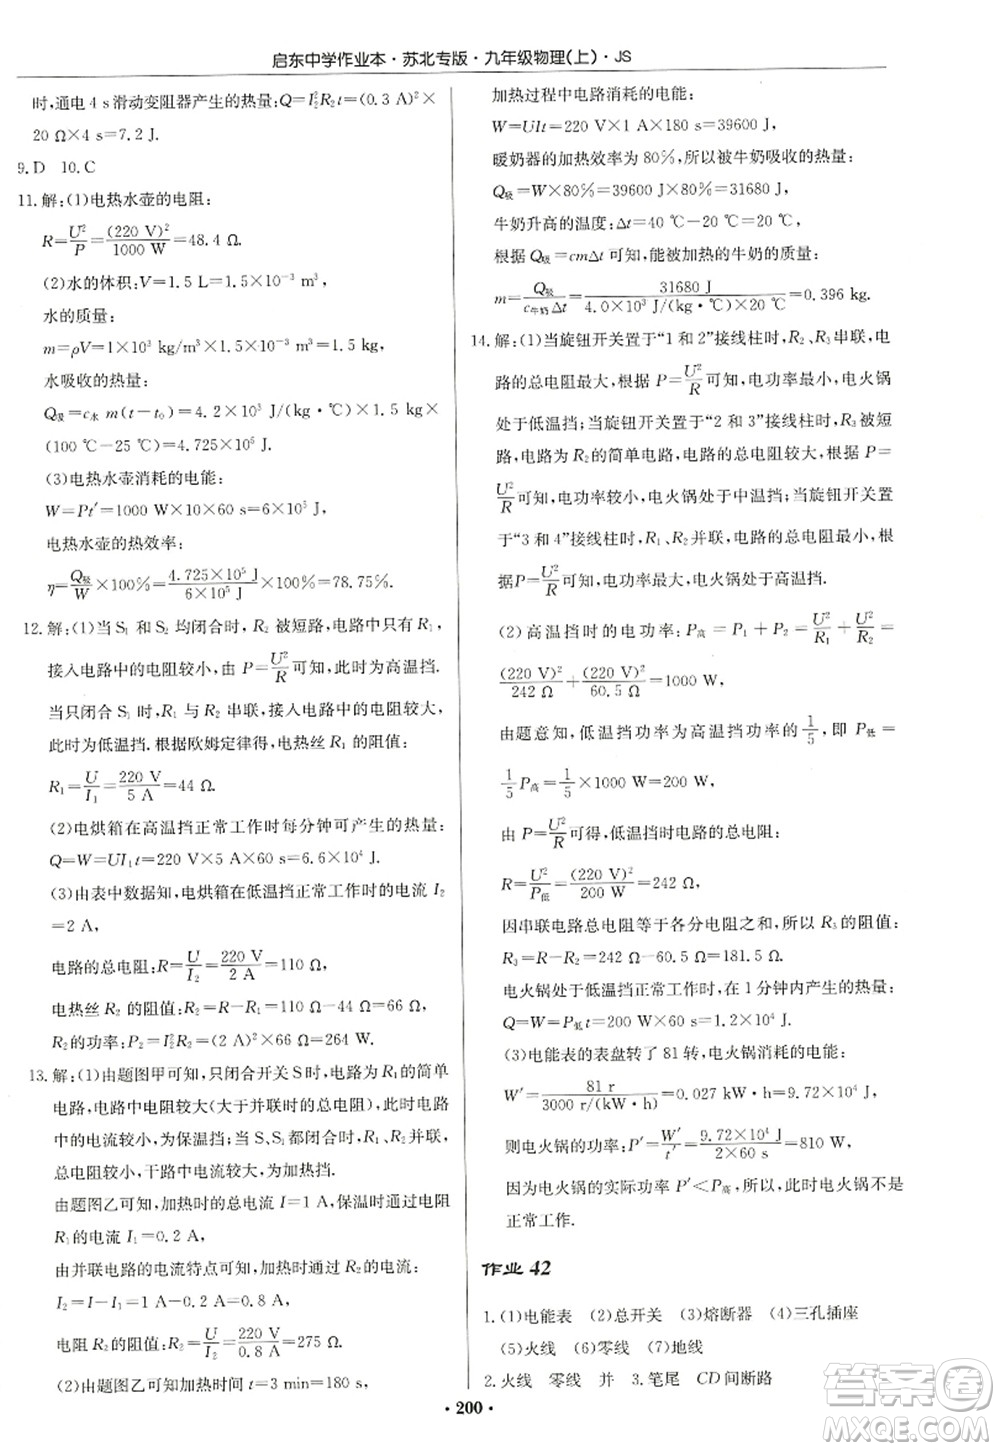 启东中学作业本·苏北专版·九年级物理(上)·JS
时,通电4 s滑动变阻器产生的热量:Q=I₂²R₂t=(0.3 A)²×
20 Ω×4 s=7.2 J.
9.D 10.C
11.解:(1)电热水壶的电阻:
R=U²/P=(220 V)²/1000 W=48.4 Ω.
(2)水的体积:V=1.5 L=1.5×10⁻³ m³,
水的质量:
m=ρV=1×10³ kg/m³×1.5×10⁻³ m³=1.5 kg,
水吸收的热量:
Q吸=c水 m(t-t₀)=4.2×10³ J/(kg·℃)×1.5 kg×
(100 ℃-25 ℃)=4.725×10⁵ J.
(3)电热水壶消耗的电能:
W=Pt′=1000 W×10×60 s=6×10⁵ J,
电热水壶的热效率:
η=Q吸/W×100%=4.725×10⁵ J/6×10⁵ J×100%=78.75%.
12.解:(1)当 S₁ 和 S₂ 均闭合时,R₂ 被短路,电路中只有 R₁,
接入电路中的电阻较小,由 P=U²/R可知,此时为高温挡.
当只闭合 S₁ 时,R₁ 与 R₂ 串联,接入电路中的电阻较大,
此时为低温挡.根据欧姆定律得,电热丝 R₁ 的阻值:
R₁=U/I₁=220 V/5 A=44 Ω.
(2)电烘箱在高温挡正常工作时每分钟可产生的热量:
Q=W=UI₁t=220 V×5 A×60 s=6.6×10⁴ J.
(3)由表中数据知,电烘箱在低温挡正常工作时的电流 I₂
=2 A,
电路的总电阻:R=U/I₂=220 V/2 A=110 Ω,
电热丝 R₂ 的阻值:R₂=R-R₁=110 Ω-44 Ω=66 Ω,
R₂的功率:P₂=I₂²R₂=(2 A)²×66 Ω=264 W.
13.解:(1)由题图甲可知,只闭合开关S时,电路为R₁的简单
电路,电路中电阻较大(大于并联时的总电阻),此时电路
中的电流较小,为保温挡;当 S、S₁都闭合时,R₁、R₂并联,
总电阻较小,干路中电流较大,为加热挡.
由题图乙可知,加热时的总电流 I=1 A,保温时通过电阻
R₁的电流 I₁=0.2 A,
由并联电路的电流特点可知,加热时通过 R₂的电流:
I₂=I-I₁=1 A-0.2 A=0.8 A,
电阻 R₂的阻值:R₂=U/I₂=220 V/0.8 A=275 Ω.
(2)由题图乙可知,加热时间 t=3 min=180 s,
加热过程中电路消耗的电能:
W=UIt=220 V×1 A×180 s=39600 J,
暖奶器的加热效率为 80%,所以被牛奶吸收的热量:
Q吸=W×80%=39600 J×80%=31680 J,
牛奶升高的温度:Δt=40 ℃-20 ℃=20 ℃,
根据 Q吸=cmΔt 可知,能被加热的牛奶的质量:
m=Q吸/c牛奶Δt=31680 J/4.0×10³ J/(kg·℃)×20 ℃=0.396 kg.
14.解:(1)当旋钮开关置于“1 和 2”接线柱时,R₂、R₃串联,电
路的总电阻最大,根据 P=U²/R可知,电功率最小,电火锅
处于低温挡;当旋钮开关置于“2 和 3”接线柱时,R₃被短
路,电路为 R₂的简单电路,电路的总电阻较大,根据 P=
U²/R可知,电功率较小,电火锅处于中温挡;当旋钮开关置
于“3 和 4”接线柱时,R₁、R₂并联,电路的总电阻最小,根
据P=U²/R可知,电功率最大,电火锅处于高温挡.
(2)高温挡时的电功率:P高=P₁+P₂=U²/R₁+U²/R₂=
(220 V)²/242 Ω+(220 V)²/60.5 Ω=1000 W,
由题意知,低温挡功率为高温挡功率的1/5,即 P低=
1/5P高=1/5×1000 W=200 W,
由 P=U²/R可得,低温挡时电路的总电阻:
R=U²/P低=(220 V)²/200 W=242 Ω,
因串联电路总电阻等于各分电阻之和,所以 R₃的阻值:
R₃=R-R₂=242 Ω-60.5 Ω=181.5 Ω.
电火锅处于低温挡正常工作时,在 1 分钟内产生的热量:
Q=W=P低t=200 W×60 s=1.2×10⁴ J.
(3)电能表的表盘转了 81 转,电火锅消耗的电能:
W′=81 r/3000 r/(kW·h)=0.027 kW·h=9.72×10⁴ J,
则电火锅的功率:P′=W′/t′=9.72×10⁴ J/2×60 s=810 W,
因为电火锅的实际功率 P′<P高,所以,此时电火锅不是
正常工作.
作业 42
1.(1)电能表 (2)总开关 (3)熔断器 (4)三孔插座
(5)火线 (6)零线 (7)地线
2.火线 零线 并 3.笔尾 CD间断路
·200·
答案圈
MXQE.COM